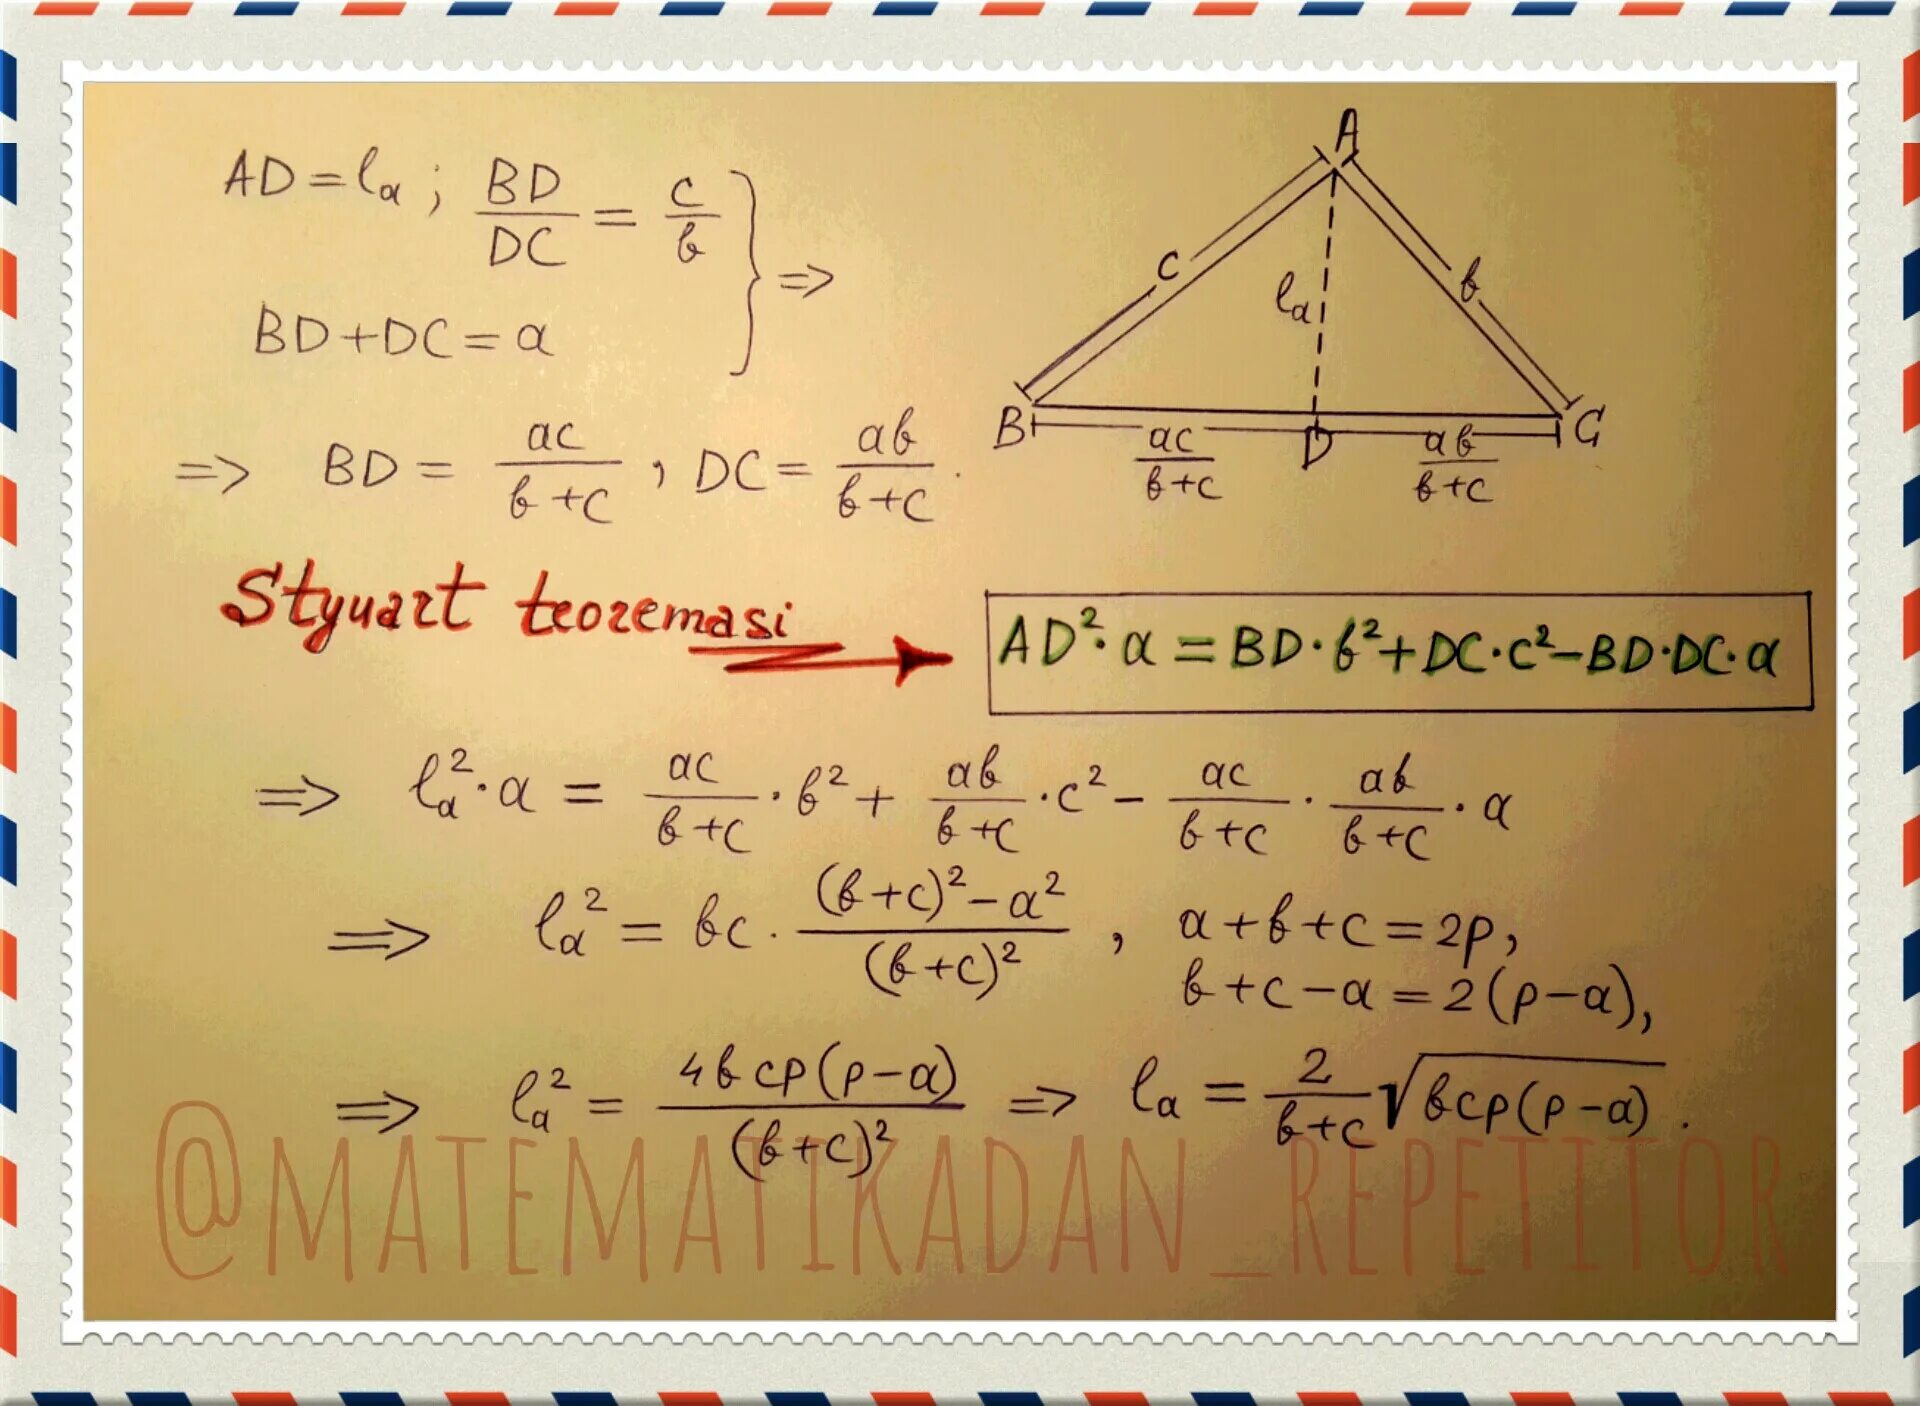 AD = lₐ ; BD/DC = c/b } ⇒
BD + DC = a
⇒ BD = ac/(b+c) , DC = ab/(b+c) .
A
c
b
lₐ
B
D
C
ac/(b+c)
ab/(b+c)
Styuart teoremasi
AD² · a = BD · b² + DC · c² − BD · DC · a
⇒ lₐ² · a = ac/(b+c) · b² + ab/(b+c) · c² − ac/(b+c) · ab/(b+c) · a
⇒ lₐ² = bc · ((b+c)² − a²)/(b+c)² , a + b + c = 2p,
b + c − a = 2(p − a),
⇒ lₐ² = 4bcp(p−a)/(b+c)² ⇒ lₐ = 2/(b+c) √(bcp(p−a)) .
@MATEMATIKADAN_REPETITOR